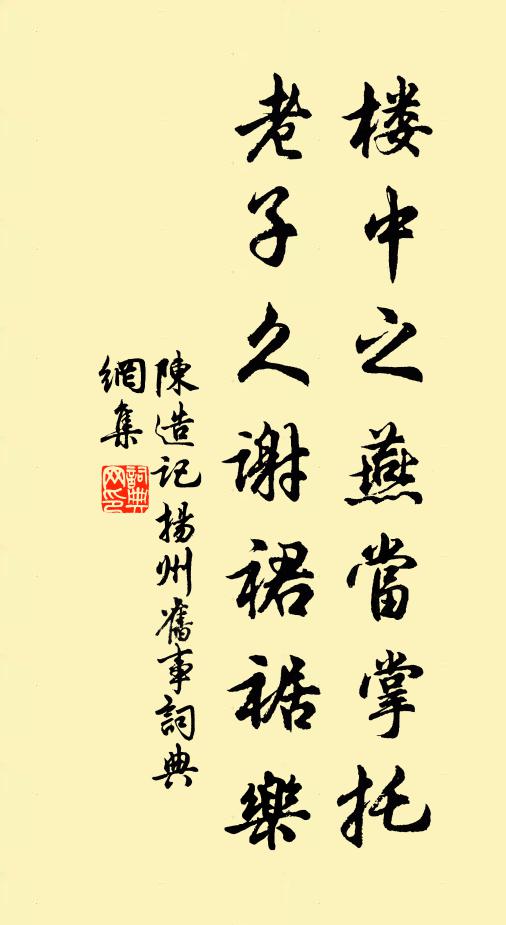 楼中之燕當掌托
老子久謝裙裾樂
陳造記揚州舊事詞典
網集
詞典
网印